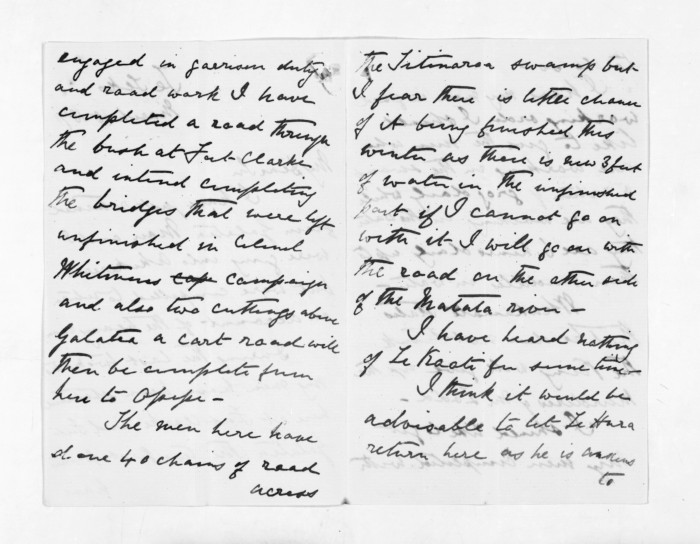 engaged in garrison duty
and road work I have
completed a road through
the bush at Fort Clarke
and intend completing
the bridges that were left
unfinished in Colonel
Whitmores campaign
and also two cuttings above
Galatea a cart road will
then be complete from
here to Opepe -
The men here have
done 40 chains of road
across
the Titinaroa swamp but
I fear there is little chance
of it being finished this
winter as there is now 3 feet
of water in the unfinished
part if I cannot go on
with it I will go on with
the road on the other side
of the Matata river -
I have heard nothing
of Te Kooti for some time -
I think it would be
advisable to let Te Hura
return here as he is anxious
to